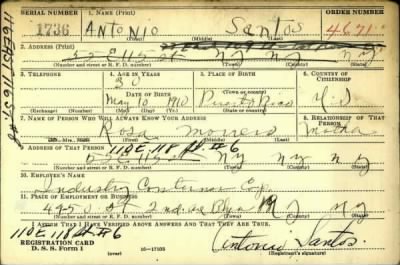 SERIAL NUMBER 1. NAME (Print) ORDER NUMBER
1736 Antonio Santos 4671
(First) (Middle) (Last)
2. ADDRESS (Print)
55 E 115 St NY NY NY
(Number and street or R. F. D. number) (Town) (County) (State)
3. TELEPHONE 4. AGE IN YEARS 5. PLACE OF BIRTH 6. COUNTRY OF CITIZENSHIP
30
DATE OF BIRTH Puerto Rico
(Town or county)
May 10 1910
(Exchange) (Number) (Mo.) (Day) (Yr.) (State or country)
7. NAME OF PERSON WHO WILL ALWAYS KNOW YOUR ADDRESS 8. RELATIONSHIP OF THAT PERSON
Rosa Mother
(Mr., Mrs., Miss) (First) (Middle) (Last)
9. ADDRESS OF THAT PERSON
110 E 118 St #6
55 E 115 St NY NY NY
(Number and street or R. F. D. number) (Town) (County) (State)
10. EMPLOYER'S NAME
Industry
11. PLACE OF EMPLOYMENT OR BUSINESS
NY
(Number and street or R. F. D. number) (Town) (County) (State)
I AFFIRM THAT I HAVE VERIFIED ABOVE ANSWERS AND THAT THEY ARE TRUE.
110 E 118 St #6
REGISTRATION CARD
D. S. S. Form 1 (over) 16—17105 Antonio Santos
(Registrant's signature)